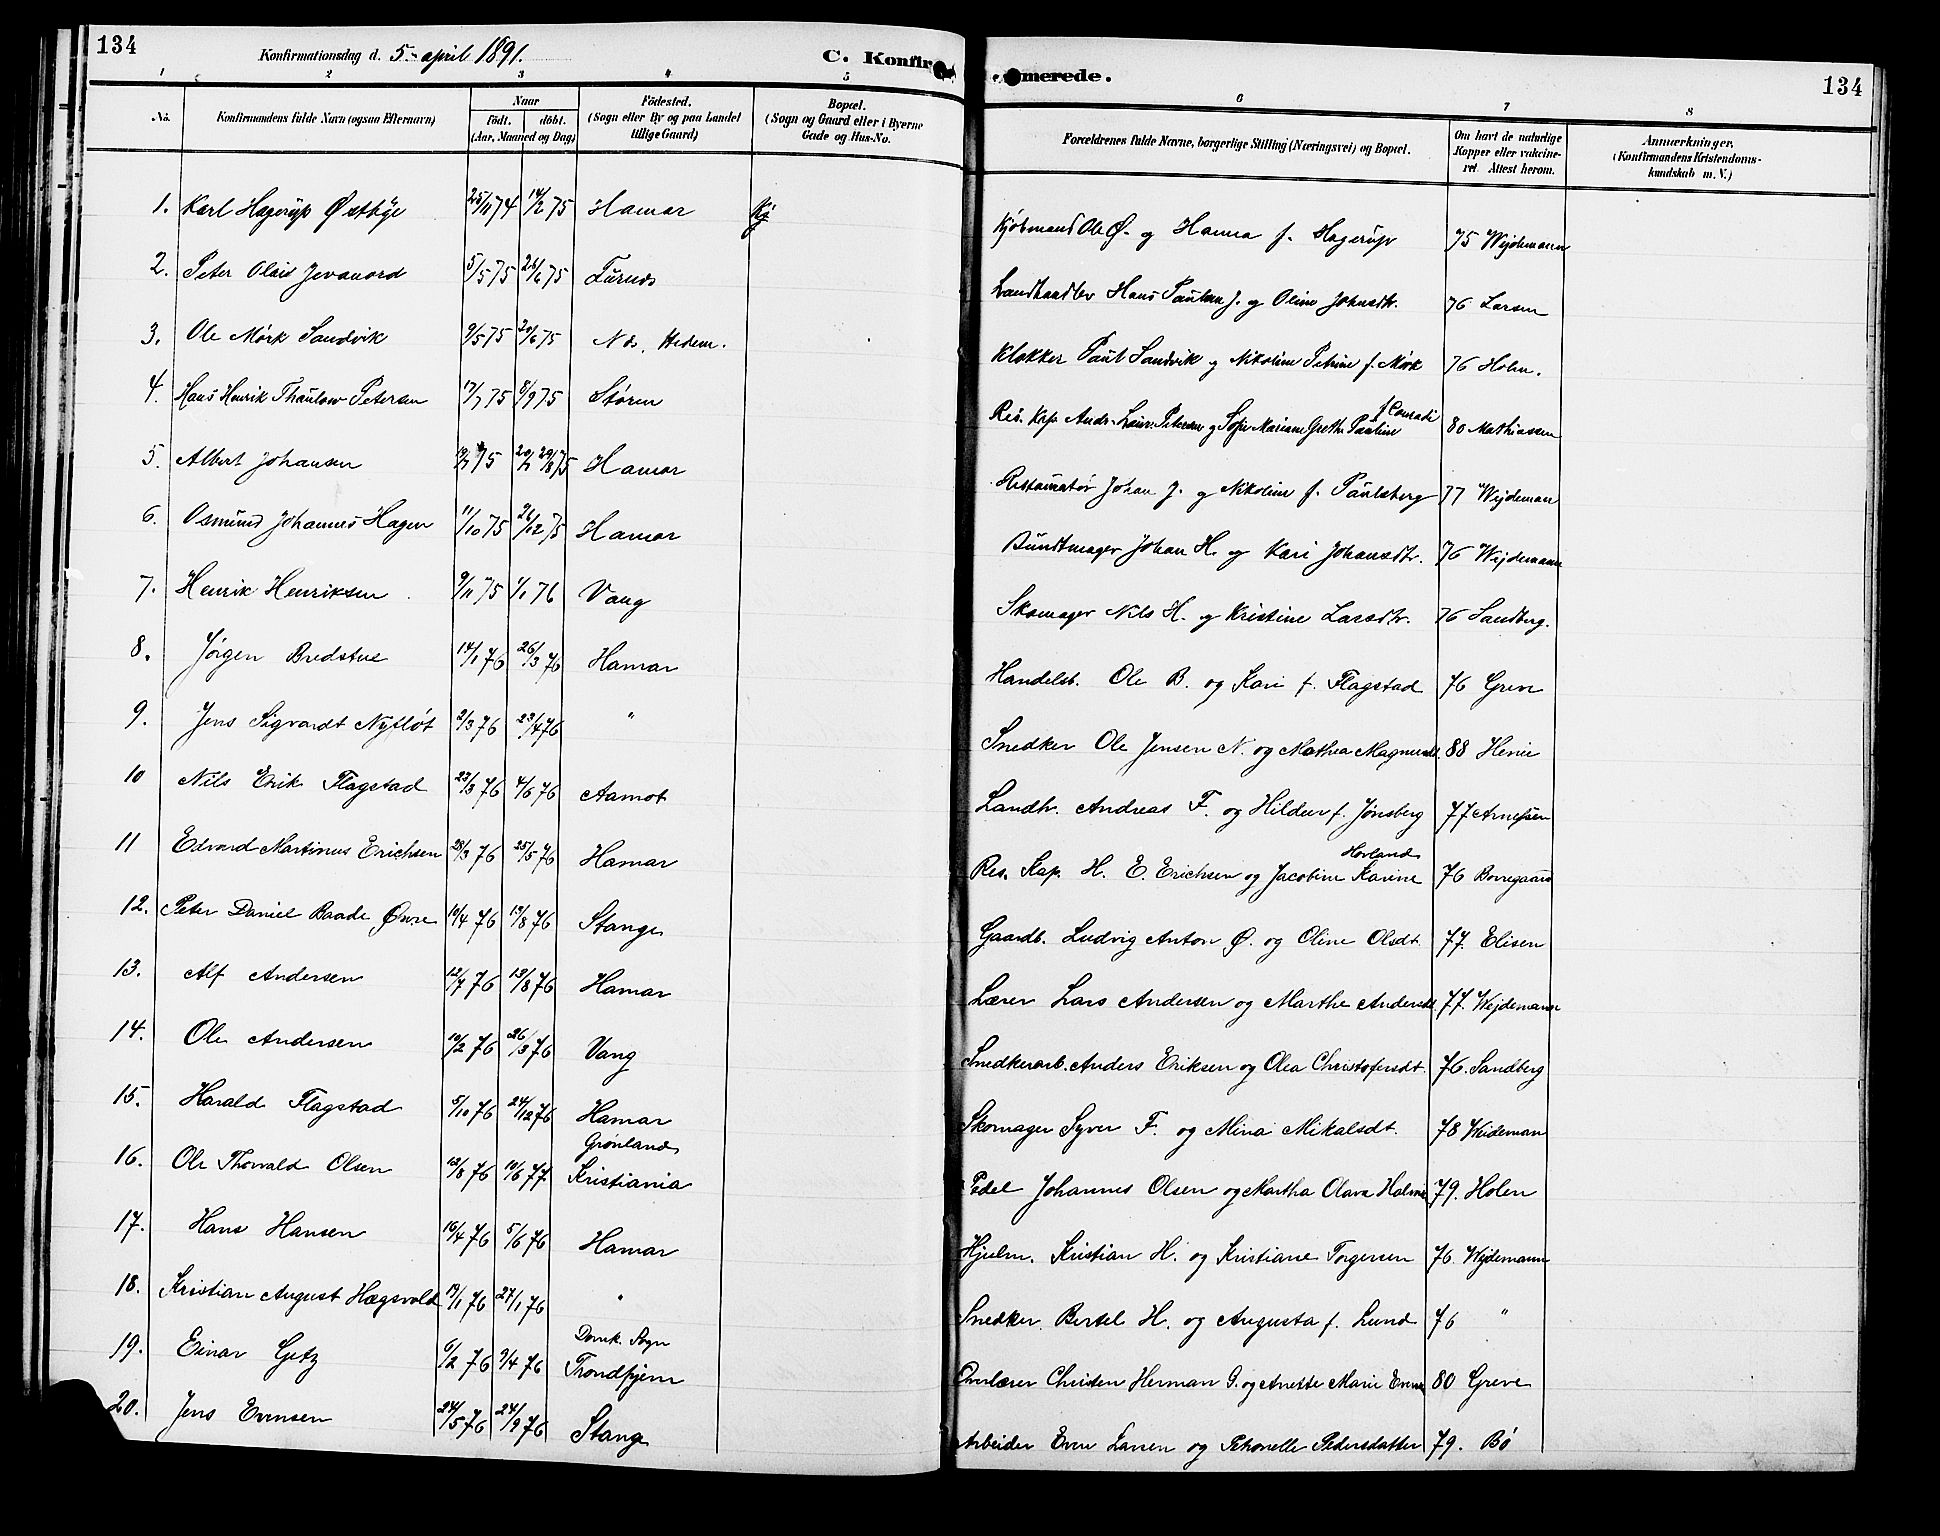 134
Konfirmationsdag d. 5 april 1891.
C. Konfirmerede.
134
1 2 3 4 5 6 7 8
No.
Konfirmandens fulde Navn (ogsaa Efternavn)
Naar
födt. döbt.
(Aar, Maaned og Dag)
Födested.
(Sogn eller By og paa Landet
tillige Gaard)
Bopæl.
(Sogn og Gaard eller i Byerne
Gade og Hus-No.
Forældrenes fulde Navne, borgerlige Stilling (Næringsvei) og Bopæl.
Om havt de naturlige
Kopper eller vakcine-
ret. Attest herom.
Anmærkninger.
(Konfirmandens Kristendoms-
kundskab m. V.)
1. Karl Hagerup Østbye 25/11 74 14/2 75 Hamar Kjøbmand Ole Ø. og Hanna f. Hagerup 75 Wejdemann
2. Peter Olais Jevanord 5/5 75 26/6 75 Furnæs Landhandler Hans Paulsen J. og Oline Johnsdtr. 76 Larsen
3. Ole Mørk Sandvik 9/5 75 20/6 75 Næs, Hedem. Klokker Paul Sandvik og Nikoline Petrine f. Mørk 76 Holm.
4. Hans Henrik Thaulow Petersen 17/7 75 8/9 75 Støren Res. Kap. Andr. Laur. Petersen og Sofie Mariane Grethe Pauline f. Conradi 80 Mathiassen
5. Albert Johansen 75 29/8 75 Hamar Restauratør Johan J. og Nikoline f. Paulsberg 77 Wejdeman
6. Osmund Johannes Hagen 11/10 75 26/12 75 Hamar Bundtmager Johan H. og Kari Johansdtr. 76 Wejdemann
7. Henrik Henriksen 9/11 75 1/1 76 Vang Skomager Nils H. og Kristine Larsdtr. 76 Sandberg.
8. Jørgen Bredstue 14/1 76 26/3 76 Hamar Handelsb. Ole B. og Kari f. Flagstad 76 Greve
9. Jens Sigvardt Nyfløt 2/3 76 23/4 76 " Snedker Ole Jensen N. og Mathea Magnusdt. 88 Henie
10 Nils Erik Flagstad 23/3 76 4/6 76 Aamot Landh. Andreas F. og Hildur f. Jønsberg 77 Arnesen
11 Edvard Martinus Erichsen 28/3 76 25/5 76 Hamar Res. Kap. H. E. Erichsen og Jacobine Karine Hovland 76 Borregaard
12. Peter Daniel Baade Øvre 10/4 76 13/8 76 Stange Gaardb. Ludvig Anton Ø. og Oline Olsdt. 77. Elisen
13. Alf Andersen 12/7 76 13/8 76 Hamar Lærer Lars Andersen og Marthe Andersdt. 77. Wejdemann
14. Ole Andersen 10/2 76 26/3 76 Vang Snedkerarb. Anders Eriksen og Olea Christofersdt. 76. Sandberg
15. Harald Flagstad 5/10 76 24/12 76 Hamar Skomager Syver F. og Mina Mikalsdt. 78 Weideman
16. Ole Thorvald Olsen 13/8 76 10/6 77 Grønland Kristiania Pedel Johannes Olsen og Martha Olava Halvor 79. Holen
17. Hans Hansen 16/4 76 5/6 76 Hamar Hjulm. Kristian H. og Kristiane Torgersen 76. Wejdemann
18. Kristian August Hægsvold 19/1 76 27/1 76 " Snedker Bertel H. og Augusta f. Lund 76 "
19. Einar Getz 6/2 76 9/4 76 Domk. Sogn Trondhjem Overlærer Christen Herman G. og Anette Marie 80 Greve
20. Jens Evensen 24/5 76 24/9 76 Stange Arbeider Even Larsen og Petronelle Pedersdatter 79. Bö